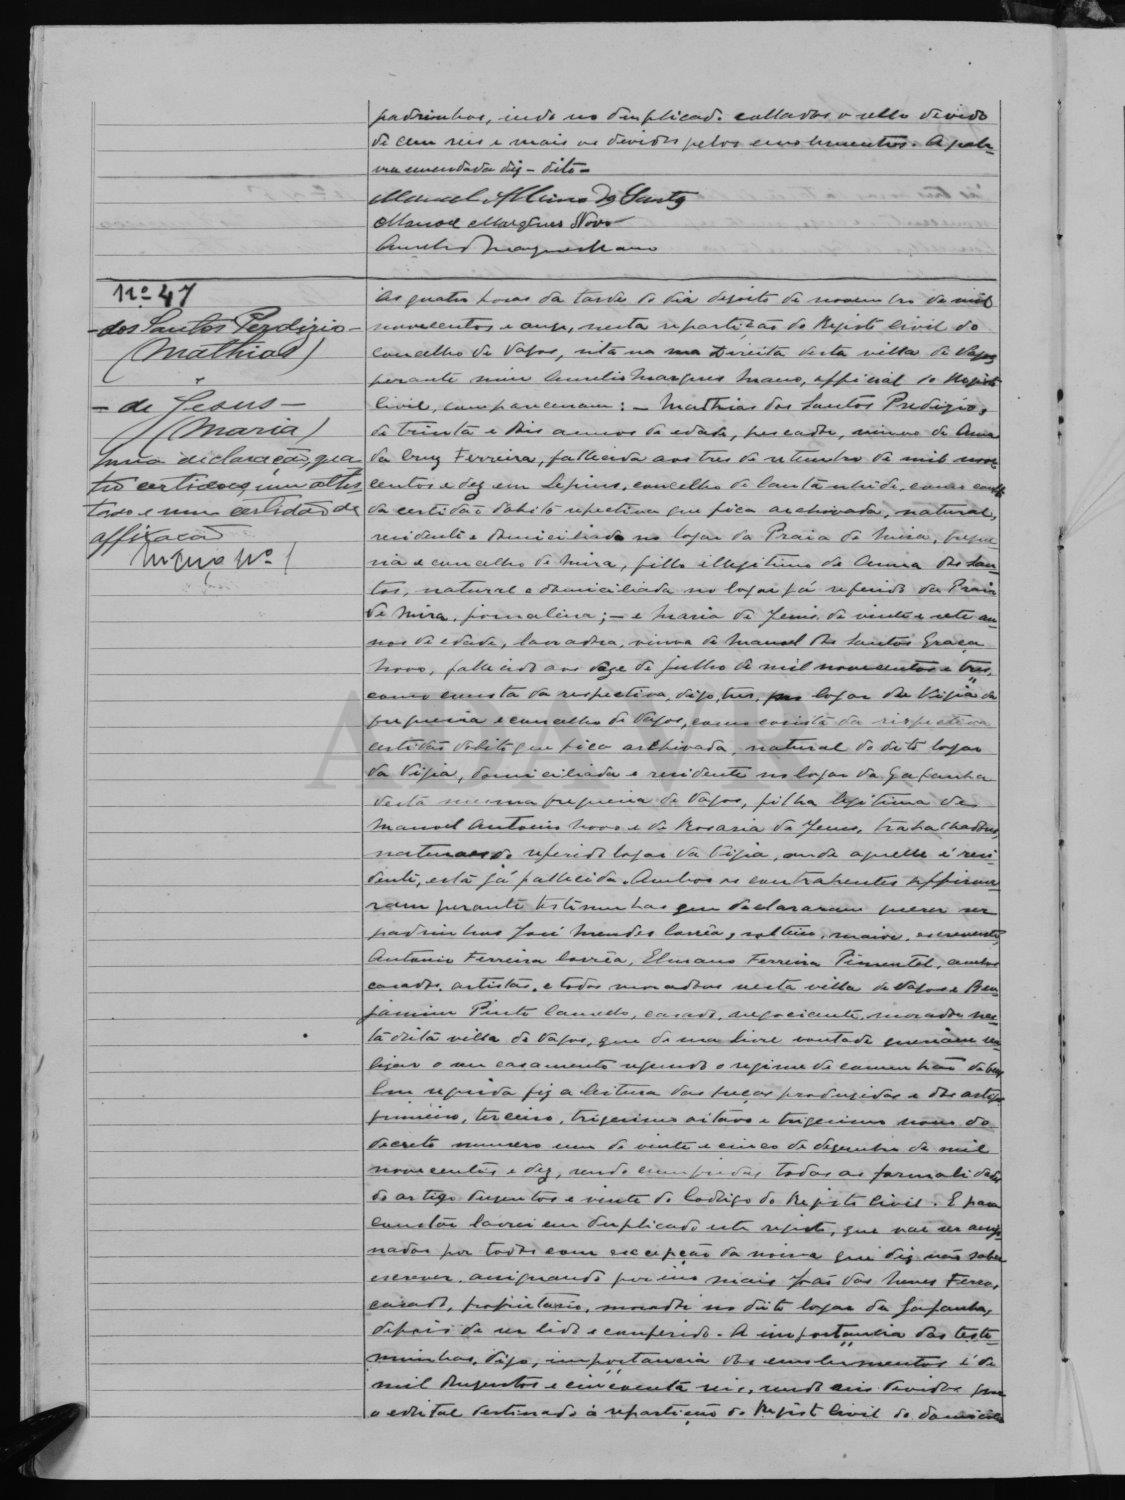 padrinhos, indo no duplicado collados o sello devido
de cem reis e mais os devidos pelos emolumentos. A pala-
vra emendada diz - dito -
Manoel Albino dos Santos
Manoel Marques Novo
Aurelio Marques Mano
Nº 47
- dos Santos Perdizio -
(Mathias)
- de Jesus -
(Maria)
Uma declaração, qua-
tro certidões, um attes-
tado e uma certidão de
affixação
Março nº 1
Ás quatro horas da tarde do dia dezoito de novembro de mil
novecentos e onze, nesta repartição do Registo Civil do
concelho de Vagos, sita na rua Direita desta villa de Vagos
perante mim Aurelio Marques Mano, official do Registo
Civil, compareceram: - Mathias dos Santos Predizio,
de trinta e dois annos de edade, pescador, viuvo de Anna
da Cruz Ferreira, fallecida aos tres de setembro de mil nove-
centos e dez em Lepins, concelho de Cantanhede, como consta
da certidão d'obito respectiva que fica archivada, natural,
residente e domiciliado no logar da Praia de Mira, fregue-
sia e concelho de Mira, filho illegitimo de Anna dos San-
tos, natural e domiciliada no logar já referido da Praia
de Mira, jornaleira; - e Maria de Jesus, de vinte e sete an-
nos de edade, lavradora, viuva de Manoel dos Santos Graça
Novo, fallecido aos doze de julho de mil novecentos e tres,
como consta da respectiva, digo, tres, no logar da Vigia da
freguesia e concelho de Vagos, como consta da respectiva
certidão d'obito que fica archivada, natural do dito logar
da Vigia, domiciliada e residente no logar da Gafanha
desta mesma freguesia de Vagos, filha legitima de
Manoel Antonio Novo e de Rosaria de Jesus, trabalhadores,
naturaes do referido logar da Vigia, onde aquelle é resi-
dente, esta já fallecida. Ambos os contrahentes affirma-
ram perante testimunhas que declararam querer ser
padrinhos José Mendes Corrêa, solteiro, maior, escrevente,
Antonio Ferreira Corrêa, Elmano Ferreira Pimentel, ambos
casados, artistas, e todos moradores nesta villa de Vagos e Ben-
jamim Pinto Camello, casado, negociante, morador nes-
ta dita villa de Vagos, que de sua livre vontade queriam rea-
lizar o seu casamento segundo o regime de comunhão de bens
Em seguida fiz a leitura das peças produzidas e dos artigos
primeiro, terceiro, trigesimo oitavo e trigesimo nono do
decreto numero um de vinte e cinco de dezembro de mil
novecentos e dez, sendo cumpridas todas as formalidades
do artigo duzentos e vinte do Codigo do Registo Civil. E para
constar lavrei em duplicado este registo, que vae ser assig-
nados por todos com excepção da noiva que diz não saber
escrever, assignando por isso mais João das Neves
casado, proprietario, morador no dito logar da Gafanha,
depois de ser lido e conferido. A importancia das teste-
munhas, digo, importancia dos emolumentos é de
mil duzentos e cincoenta reis, sendo seis devidos por
o edital destinado á repartição do Registo Civil do domicilio
ADAVR